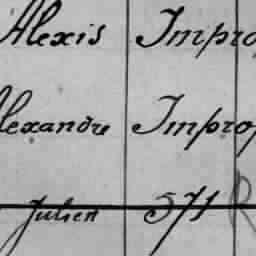 Alexis Impro
Alexandre Impro
Julien 571 R